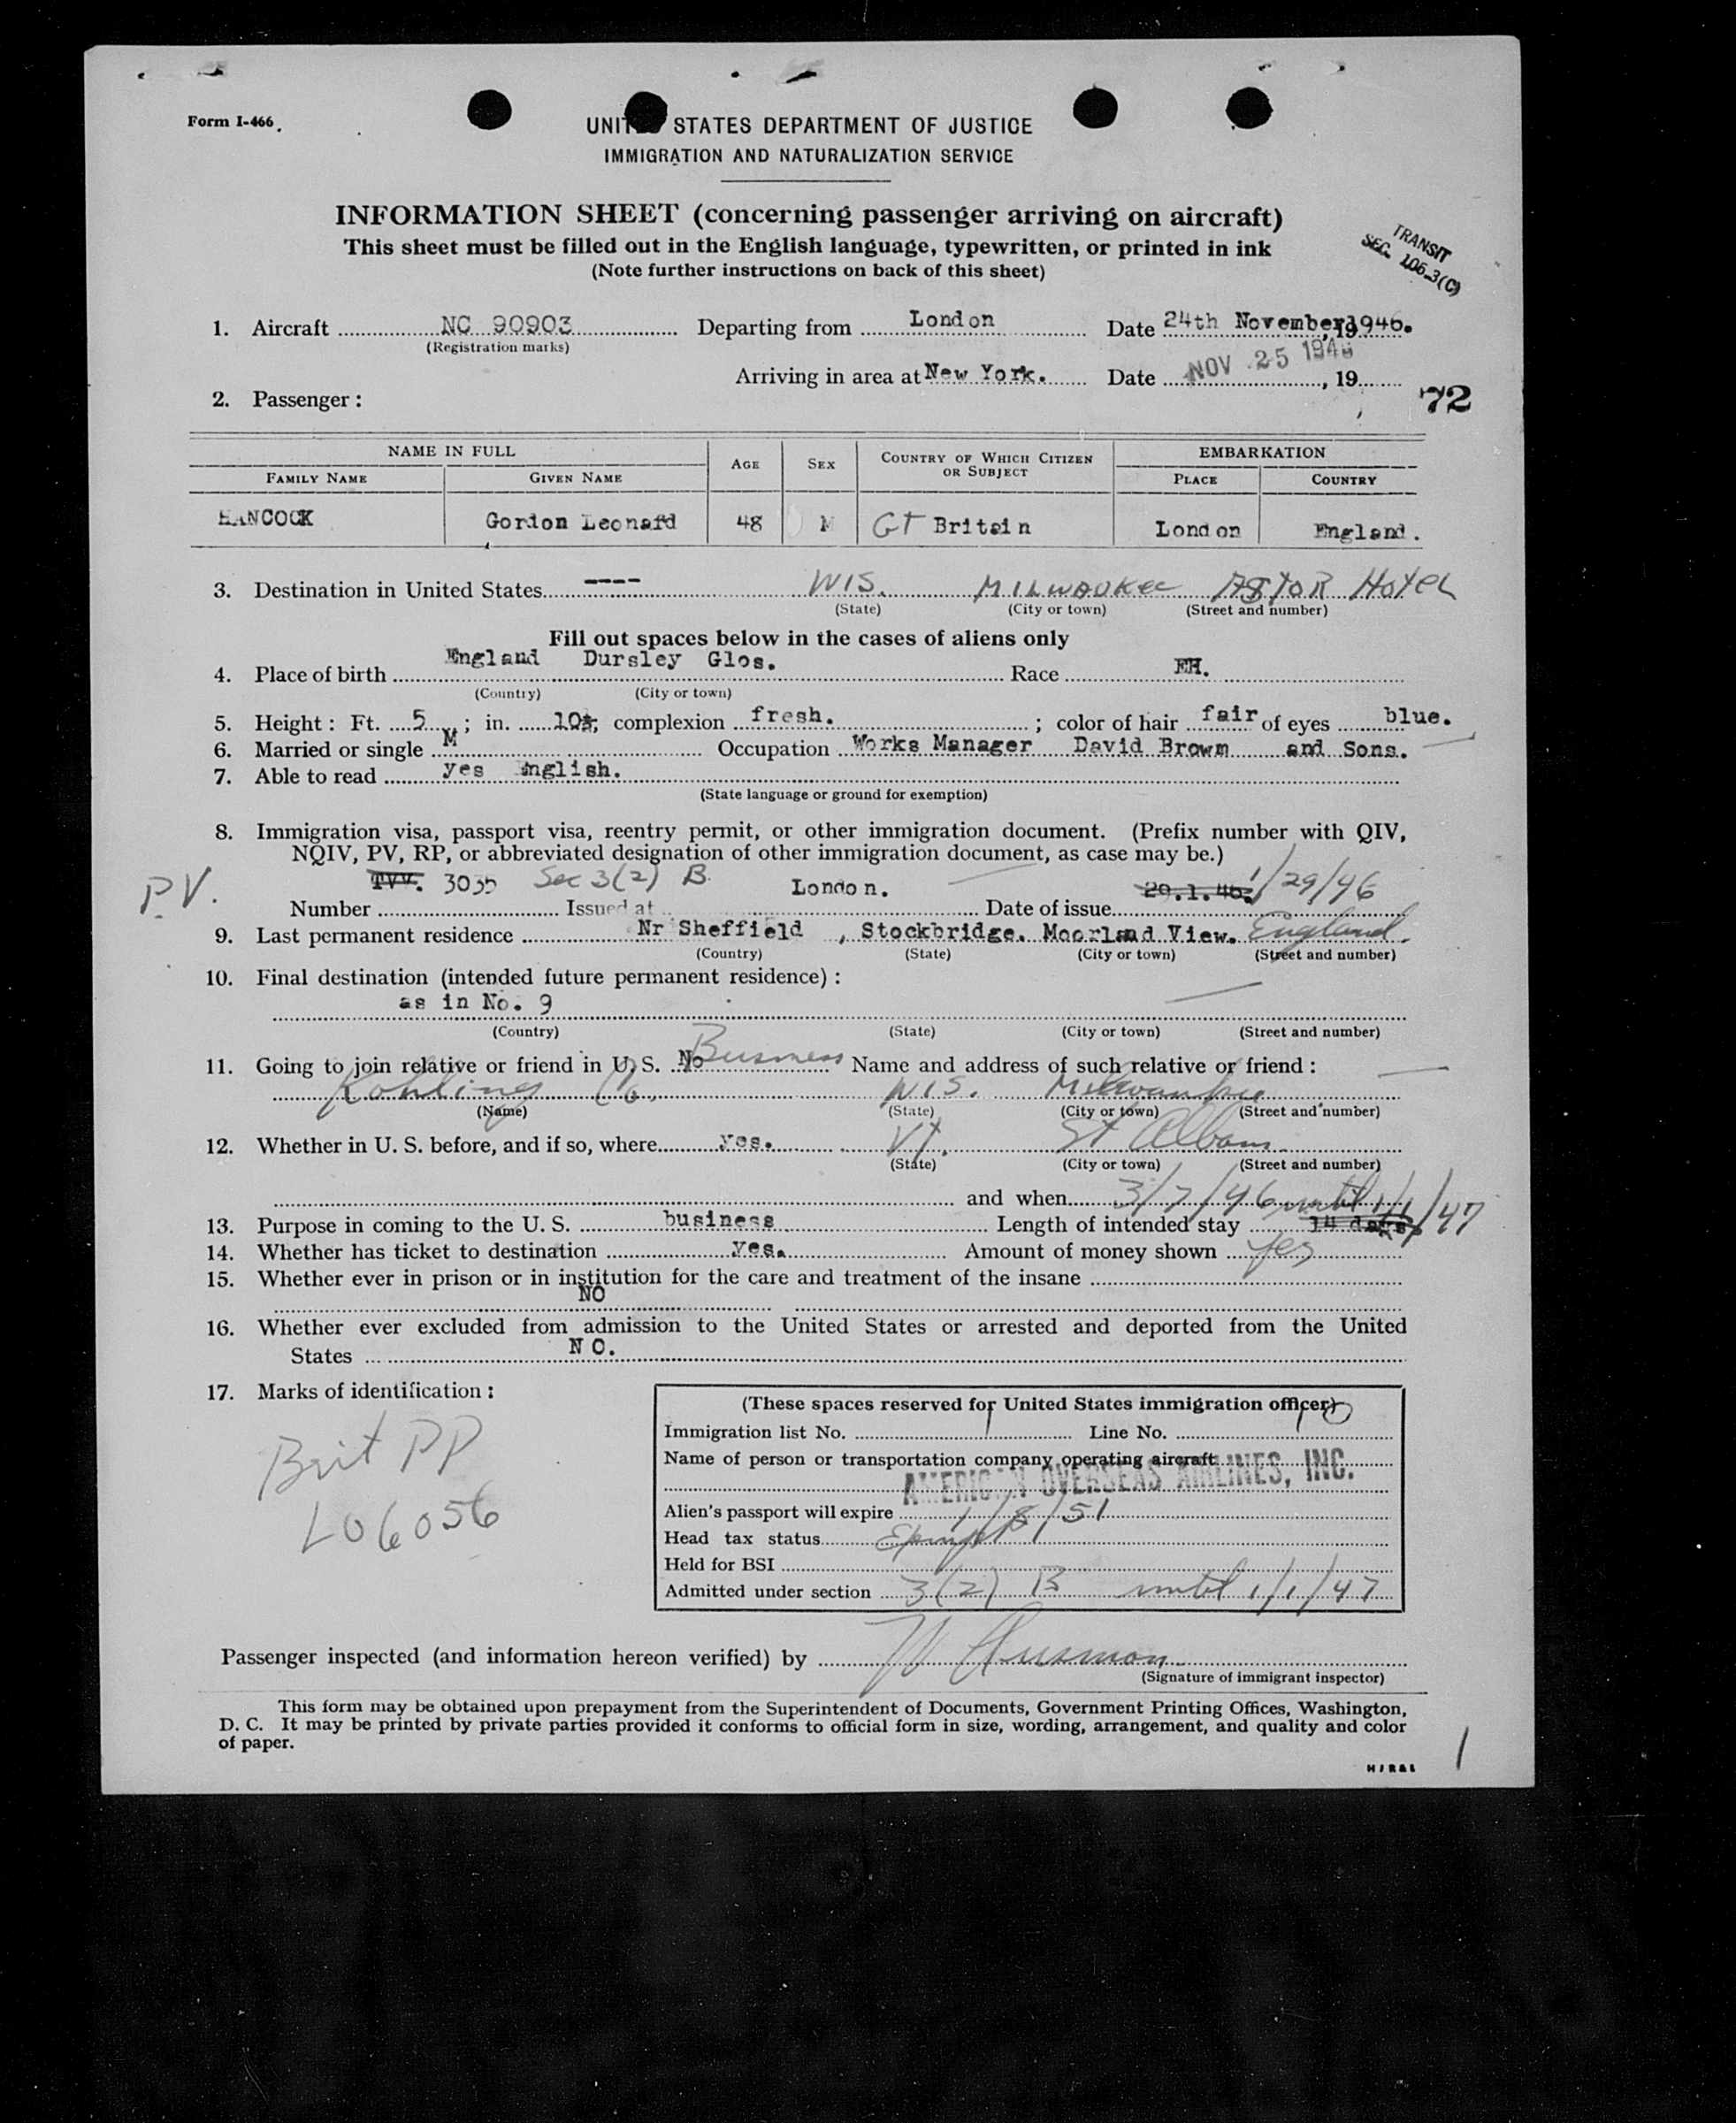 Form I-466.
UNITED STATES DEPARTMENT OF JUSTICE
IMMIGRATION AND NATURALIZATION SERVICE
INFORMATION SHEET (concerning passenger arriving on aircraft)
This sheet must be filled out in the English language, typewritten, or printed in ink
(Note further instructions on back of this sheet)
TRANSIT
SEC. 106.3(C)
1. Aircraft NC 90903 Departing from London Date 24th November, 1946.
(Registration marks)
Arriving in area at New York. Date NOV 25 1946, 19
72
2. Passenger:
NAME IN FULL AGE SEX COUNTRY OF WHICH CITIZEN OR SUBJECT EMBARKATION
FAMILY NAME GIVEN NAME PLACE COUNTRY
HANCOCK Gordon Leonard 48 M GT Britain London England.
3. Destination in United States ---- WIS. MILWAUKEE ASTOR HOTEL
(State) (City or town) (Street and number)
Fill out spaces below in the cases of aliens only
4. Place of birth England Dursley Glos. Race EH.
(Country) (City or town)
5. Height: Ft. 5 ; in. 10 ; complexion fresh. ; color of hair fair of eyes blue.
6. Married or single M Occupation Works Manager David Brown and Sons.
7. Able to read yes English.
(State language or ground for exemption)
8. Immigration visa, passport visa, reentry permit, or other immigration document. (Prefix number with QIV,
NQIV, PV, RP, or abbreviated designation of other immigration document, as case may be.)
P.V. TVV. 3035 Sec 3(2) B. London. 29.1.46. 1/29/46
Number Issued at Date of issue
9. Last permanent residence Nr Sheffield , Stockbridge. Moorland View. England.
(Country) (State) (City or town) (Street and number)
10. Final destination (intended future permanent residence):
as in No. 9
(Country) (State) (City or town) (Street and number)
11. Going to join relative or friend in U. S. No Business Name and address of such relative or friend:
Kohling Co. WIS. Milwaukee
(Name) (State) (City or town) (Street and number)
12. Whether in U. S. before, and if so, where yes. Vt. St Albans
(State) (City or town) (Street and number)
and when 3/7/46 until 1/1/47
13. Purpose in coming to the U. S. business Length of intended stay 14 days
14. Whether has ticket to destination yes. Amount of money shown yes
15. Whether ever in prison or in institution for the care and treatment of the insane
NO
16. Whether ever excluded from admission to the United States or arrested and deported from the United
States NO.
17. Marks of identification:
Brit PP
L06056
(These spaces reserved for United States immigration officer)
Immigration list No. 1 Line No. 10
Name of person or transportation company operating aircraft
AMERICAN OVERSEAS AIRLINES, INC.
Alien's passport will expire 1/8/51
Head tax status Exempt
Held for BSI
Admitted under section 3(2) B until 1/1/47
Passenger inspected (and information hereon verified) by
(Signature of immigrant inspector)
This form may be obtained upon prepayment from the Superintendent of Documents, Government Printing Offices, Washington,
D. C. It may be printed by private parties provided it conforms to official form in size, wording, arrangement, and quality and color
of paper.
1